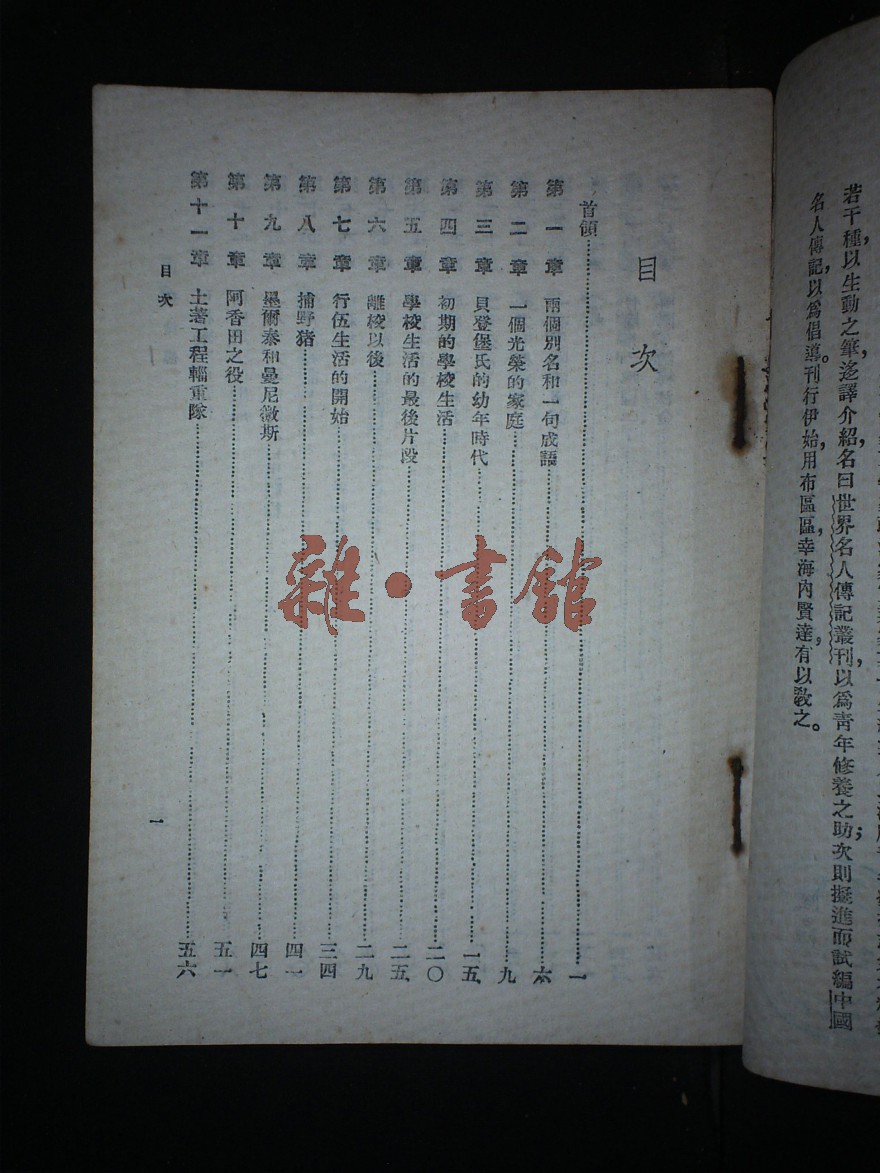 若干種，以生動之筆，迻譯介紹，名曰世界名人傳記叢刊，以爲青年修養之助；次則擬進而試編中國
名人傳記，以爲倡導。刊行伊始，用布區區，幸海內賢達，有以教之。
目次
首領……一
第一章 兩個別名和一句成語……六
第二章 一個光榮的家庭……九
第三章 貝登堡氏的幼年時代……一五
第四章 初期的學校生活……二〇
第五章 學校生活的最後片段……二五
第六章 離校以後……二九
第七章 行伍生活的開始……三四
第八章 捕野猪……四一
第九章 墨爾泰和曼尼徽斯……四七
第十章 阿香田之役……五一
第十一章 土著工程輜重隊……五六
目次
一
雜·書館